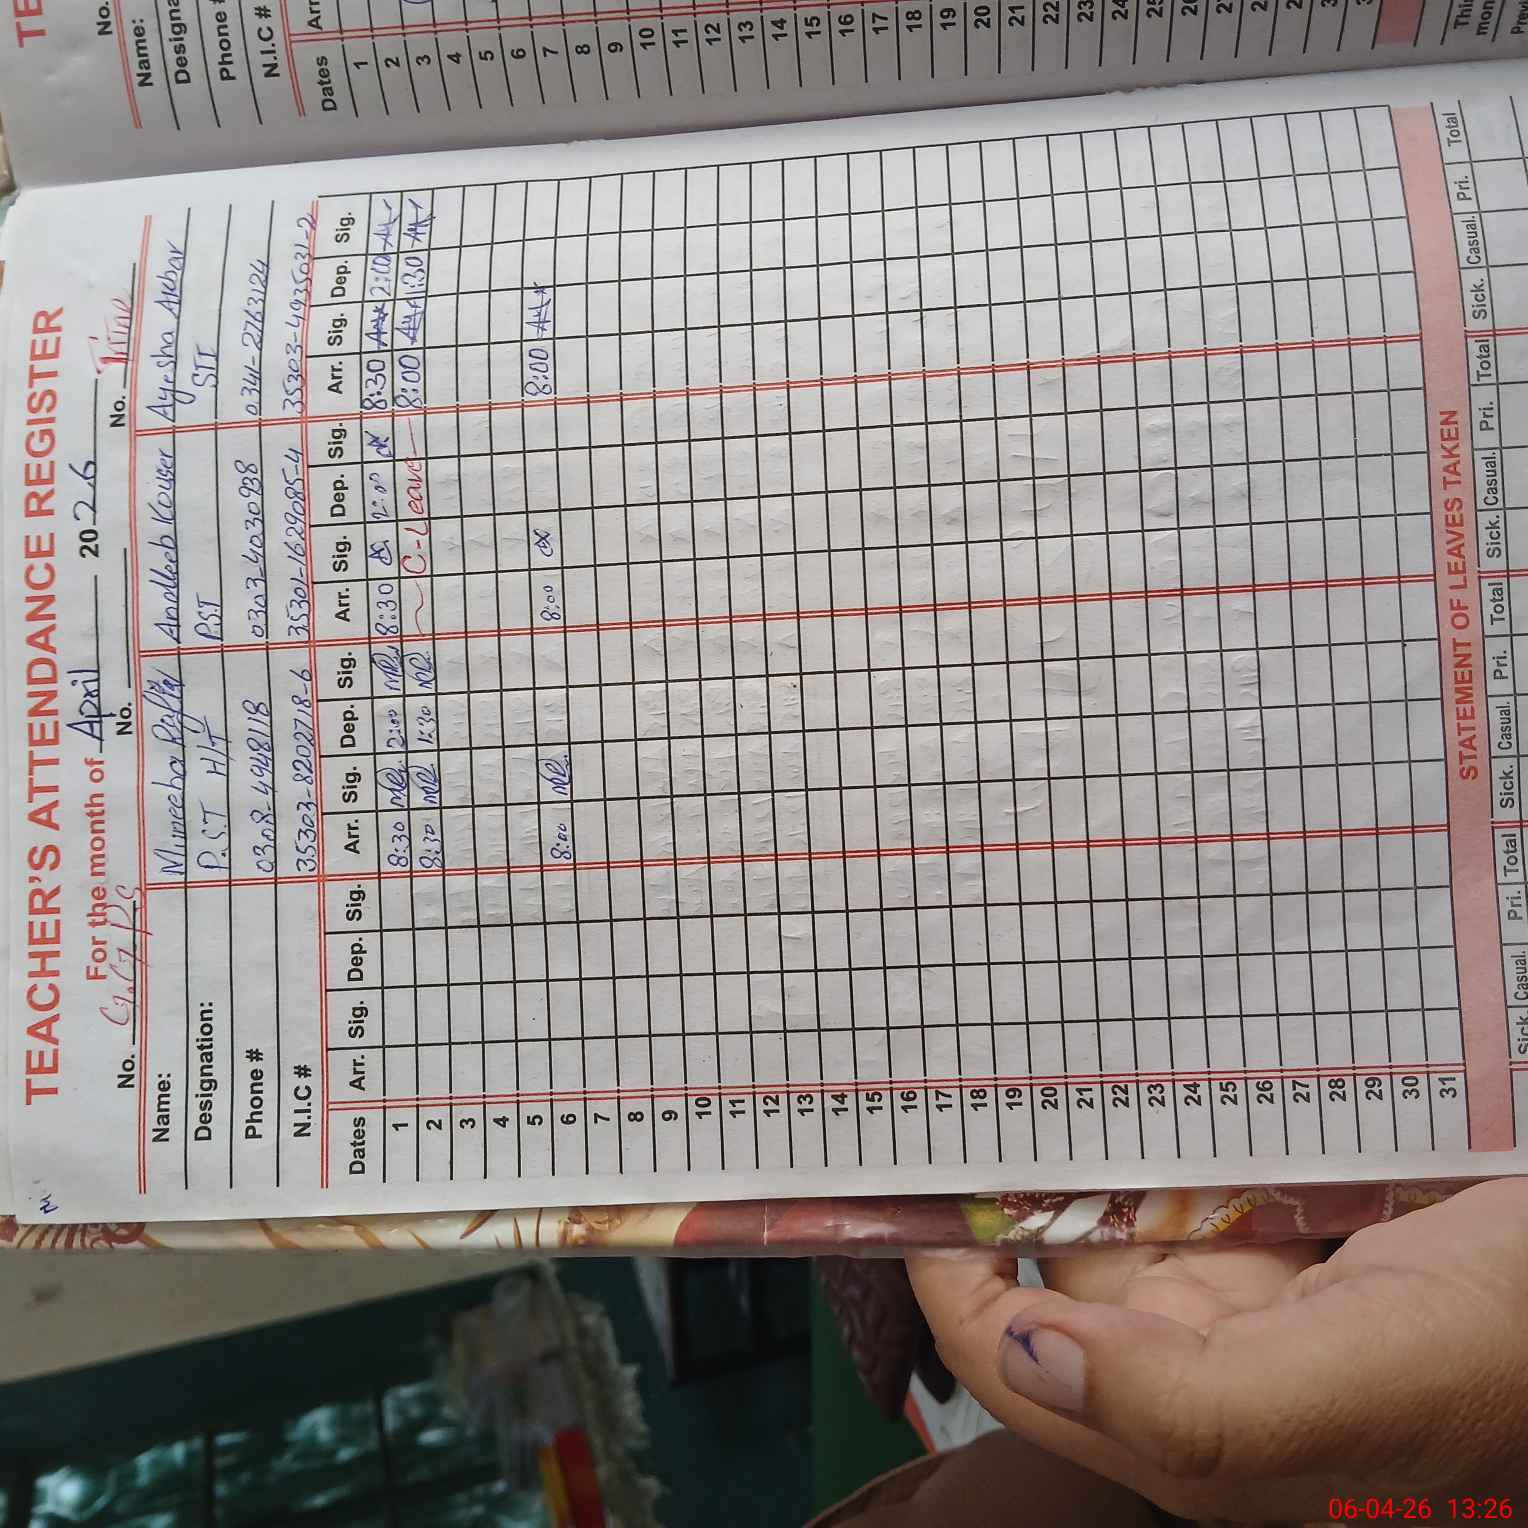 TEACHER'S ATTENDANCE REGISTER
For the month of April 2026
No. G.G.P.S No. No.
Name: Muneeba Rafiq Andleeb Kouser Ayesha Akbar
Designation: P.S.T H/T P.S.T STI
Phone # 0308-4948118 0303-4030938 0341-2763124
N.I.C # 35303-8202718-6 35301-1629085-4 35303-4935031-2
Dates Arr. Sig. Dep. Sig. Arr. Sig. Dep. Sig. Arr. Sig. Dep. Sig. Arr. Sig. Dep. Sig.
1 8:30 MR 2:00 MR 8:30 2:00 8:30 2:00
2 8:30 MR 1:30 MR C-Leave 8:00 1:30
3
4
5
6 8:00 MR 8:00 8:00
7
8
9
10
11
12
13
14
15
16
17
18
19
20
21
22
23
24
25
26
27
28
29
30
31
STATEMENT OF LEAVES TAKEN
Sick. Casual. Pri. Total Sick. Casual. Pri. Total Sick. Casual. Pri. Total Sick. Casual. Pri. Total
TE
No.
Name:
Designa
Phone #
N.I.C #
Dates Arr
1
2
3
4
5
6
7
8
9
10
11
12
13
14
15
16
17
18
19
20
21
22
23
24
25
06-04-26 13:26